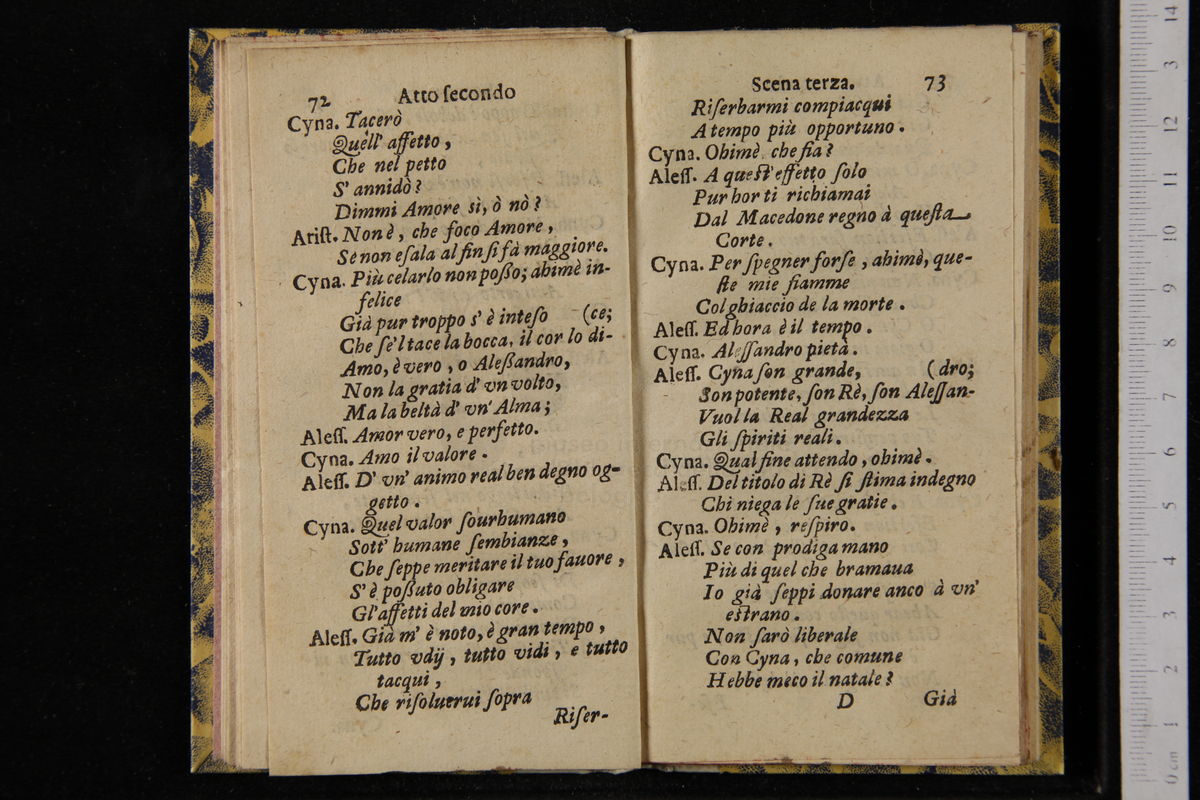 72 Atto ſecondo
Cyna. Tacerò
Quell' affetto,
Che nel petto
S' annidò?
Dimmi Amore sì, ò nò?
Ariſt. Non è, che foco Amore,
Se non eſala al fin ſi fà maggiore.
Cyna. Più celarlo non poßo; ahimè in-
felice
Già pur troppo s' è inteſo (ce;
Che ſe'l tace la bocca, il cor lo di-
Amo, è vero, o Aleßandro,
Non la gratia d' vn volto,
Ma la beltà d' vn' Alma;
Aleſſ. Amor vero, e perfetto.
Cyna. Amo il valore.
Aleſſ. D' vn' animo real ben degno og-
getto.
Cyna. Quel valor ſourhumano
Sott' humane ſembianze,
Che ſeppe meritare il tuo fauore,
S' è poßuto obligare
Gl' affetti del mio core.
Aleſſ. Già m' è noto, è gran tempo,
Tutto vdij, tutto vidi, e tutto
tacqui,
Che riſoluerui ſopra
Riſer-
Scena terza. 73
Riſerbarmi compiacqui
A tempo più opportuno.
Cyna. Ohimè che fia?
Aleſſ. A queſt' effetto ſolo
Pur hor ti richiamai
Dal Macedone regno à queſta
Corte.
Cyna. Per ſpegner forſe, ahimè, que-
ſte mie fiamme
Col ghiaccio de la morte.
Aleſſ. Ed hora è il tempo.
Cyna. Aleſſandro pietà.
Aleſſ. Cyna ſon grande, (dro;
Son potente, ſon Rè, ſon Aleſſan-
Vuol la Real grandezza
Gli ſpiriti reali.
Cyna. Qual fine attendo, ohimè.
Aleſſ. Del titolo di Rè ſi ſtima indegno
Chi niega le ſue gratie.
Cyna. Ohimè, reſpiro.
Aleſſ. Se con prodiga mano
Più di quel che bramaua
Io già ſeppi donare anco à vn'
eſtrano.
Non ſarò liberale
Con Cyna, che comune
Hebbe meco il natale?
D Già
0 cm 1 2 3 4 5 6 7 8 9 10 11 12 3 14